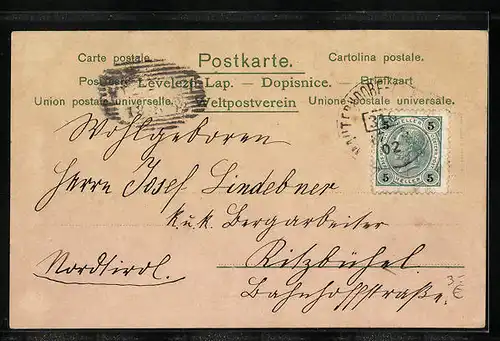 Carte postale. Postkarte. Cartolina postale.
Levelezö-Lap. — Dopisnice. — Briefkaart
Union postale universelle. Weltpostverein Unione postale universale.
MAUTERNDORF
02
5 5
HELLER
5 5
HELLER
Wohlgeboren
Herrn Josef Lindebner
k.u.k. Bergarbeiter
Nordtirol. Kitzbühel
Bahnhoffstraße.
3-
€